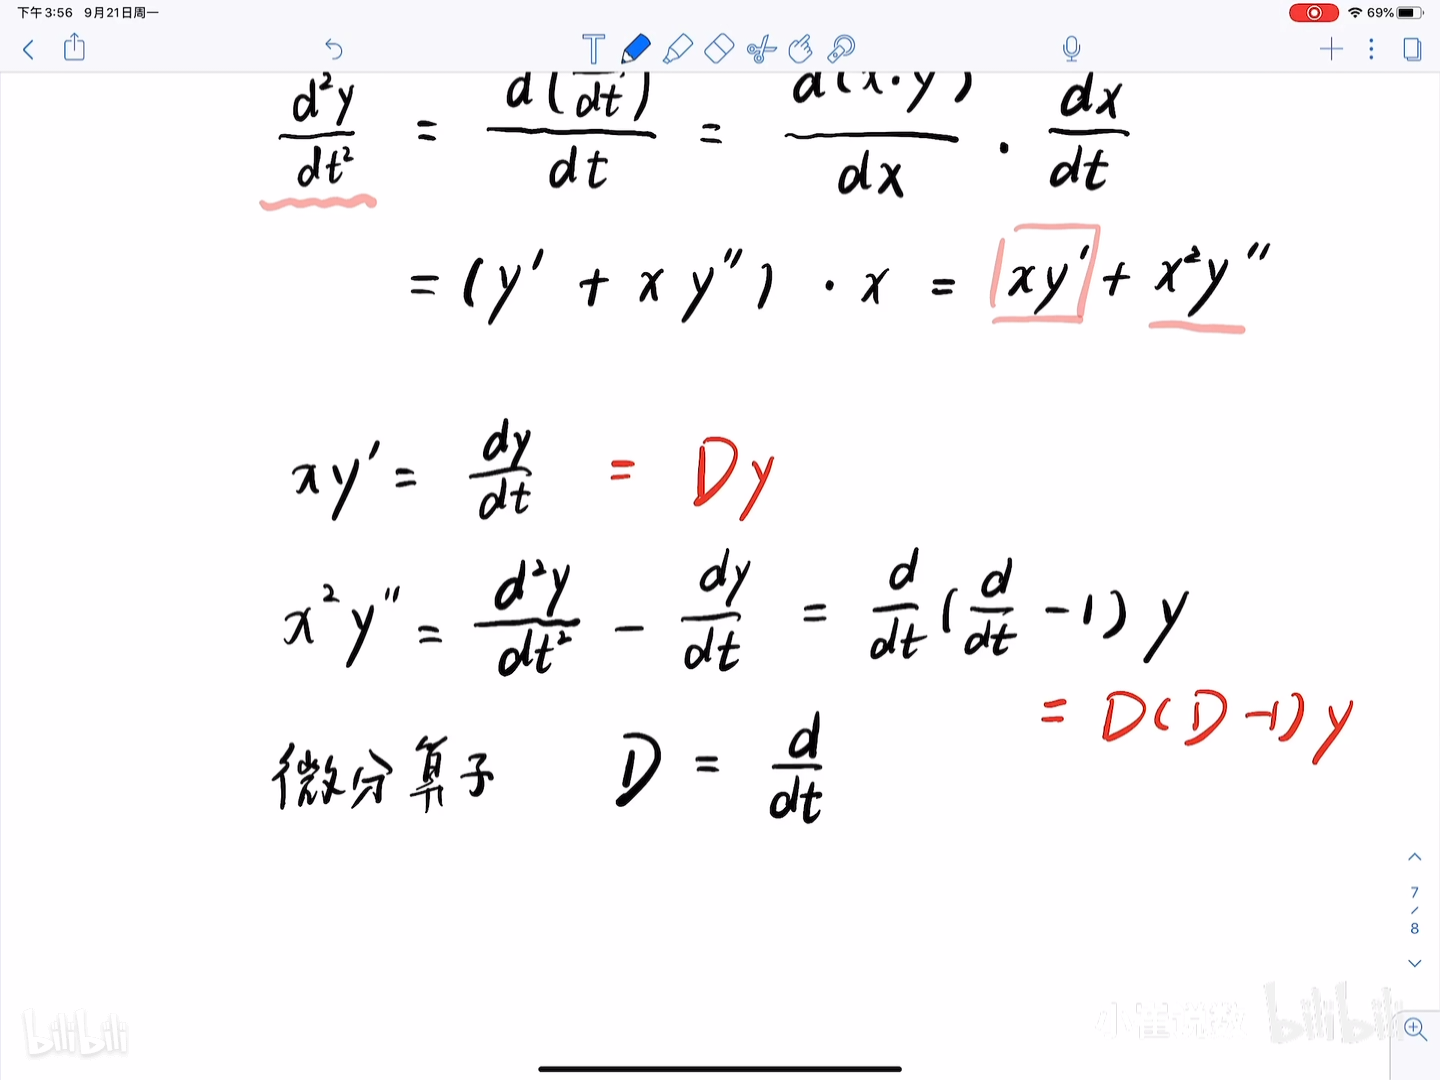 下午3:56 9月21日周一
69%
d²y/dt² = d(dy/dt)/dt = d(x·y')/dx · dx/dt
= (y' + xy'') · x = xy' + x²y''
xy' = dy/dt = Dy
x²y'' = d²y/dt² - dy/dt = d/dt(d/dt -1)y
= D(D-1)y
微分算子 D = d/dt
7
/
8
bilibili
bilibili